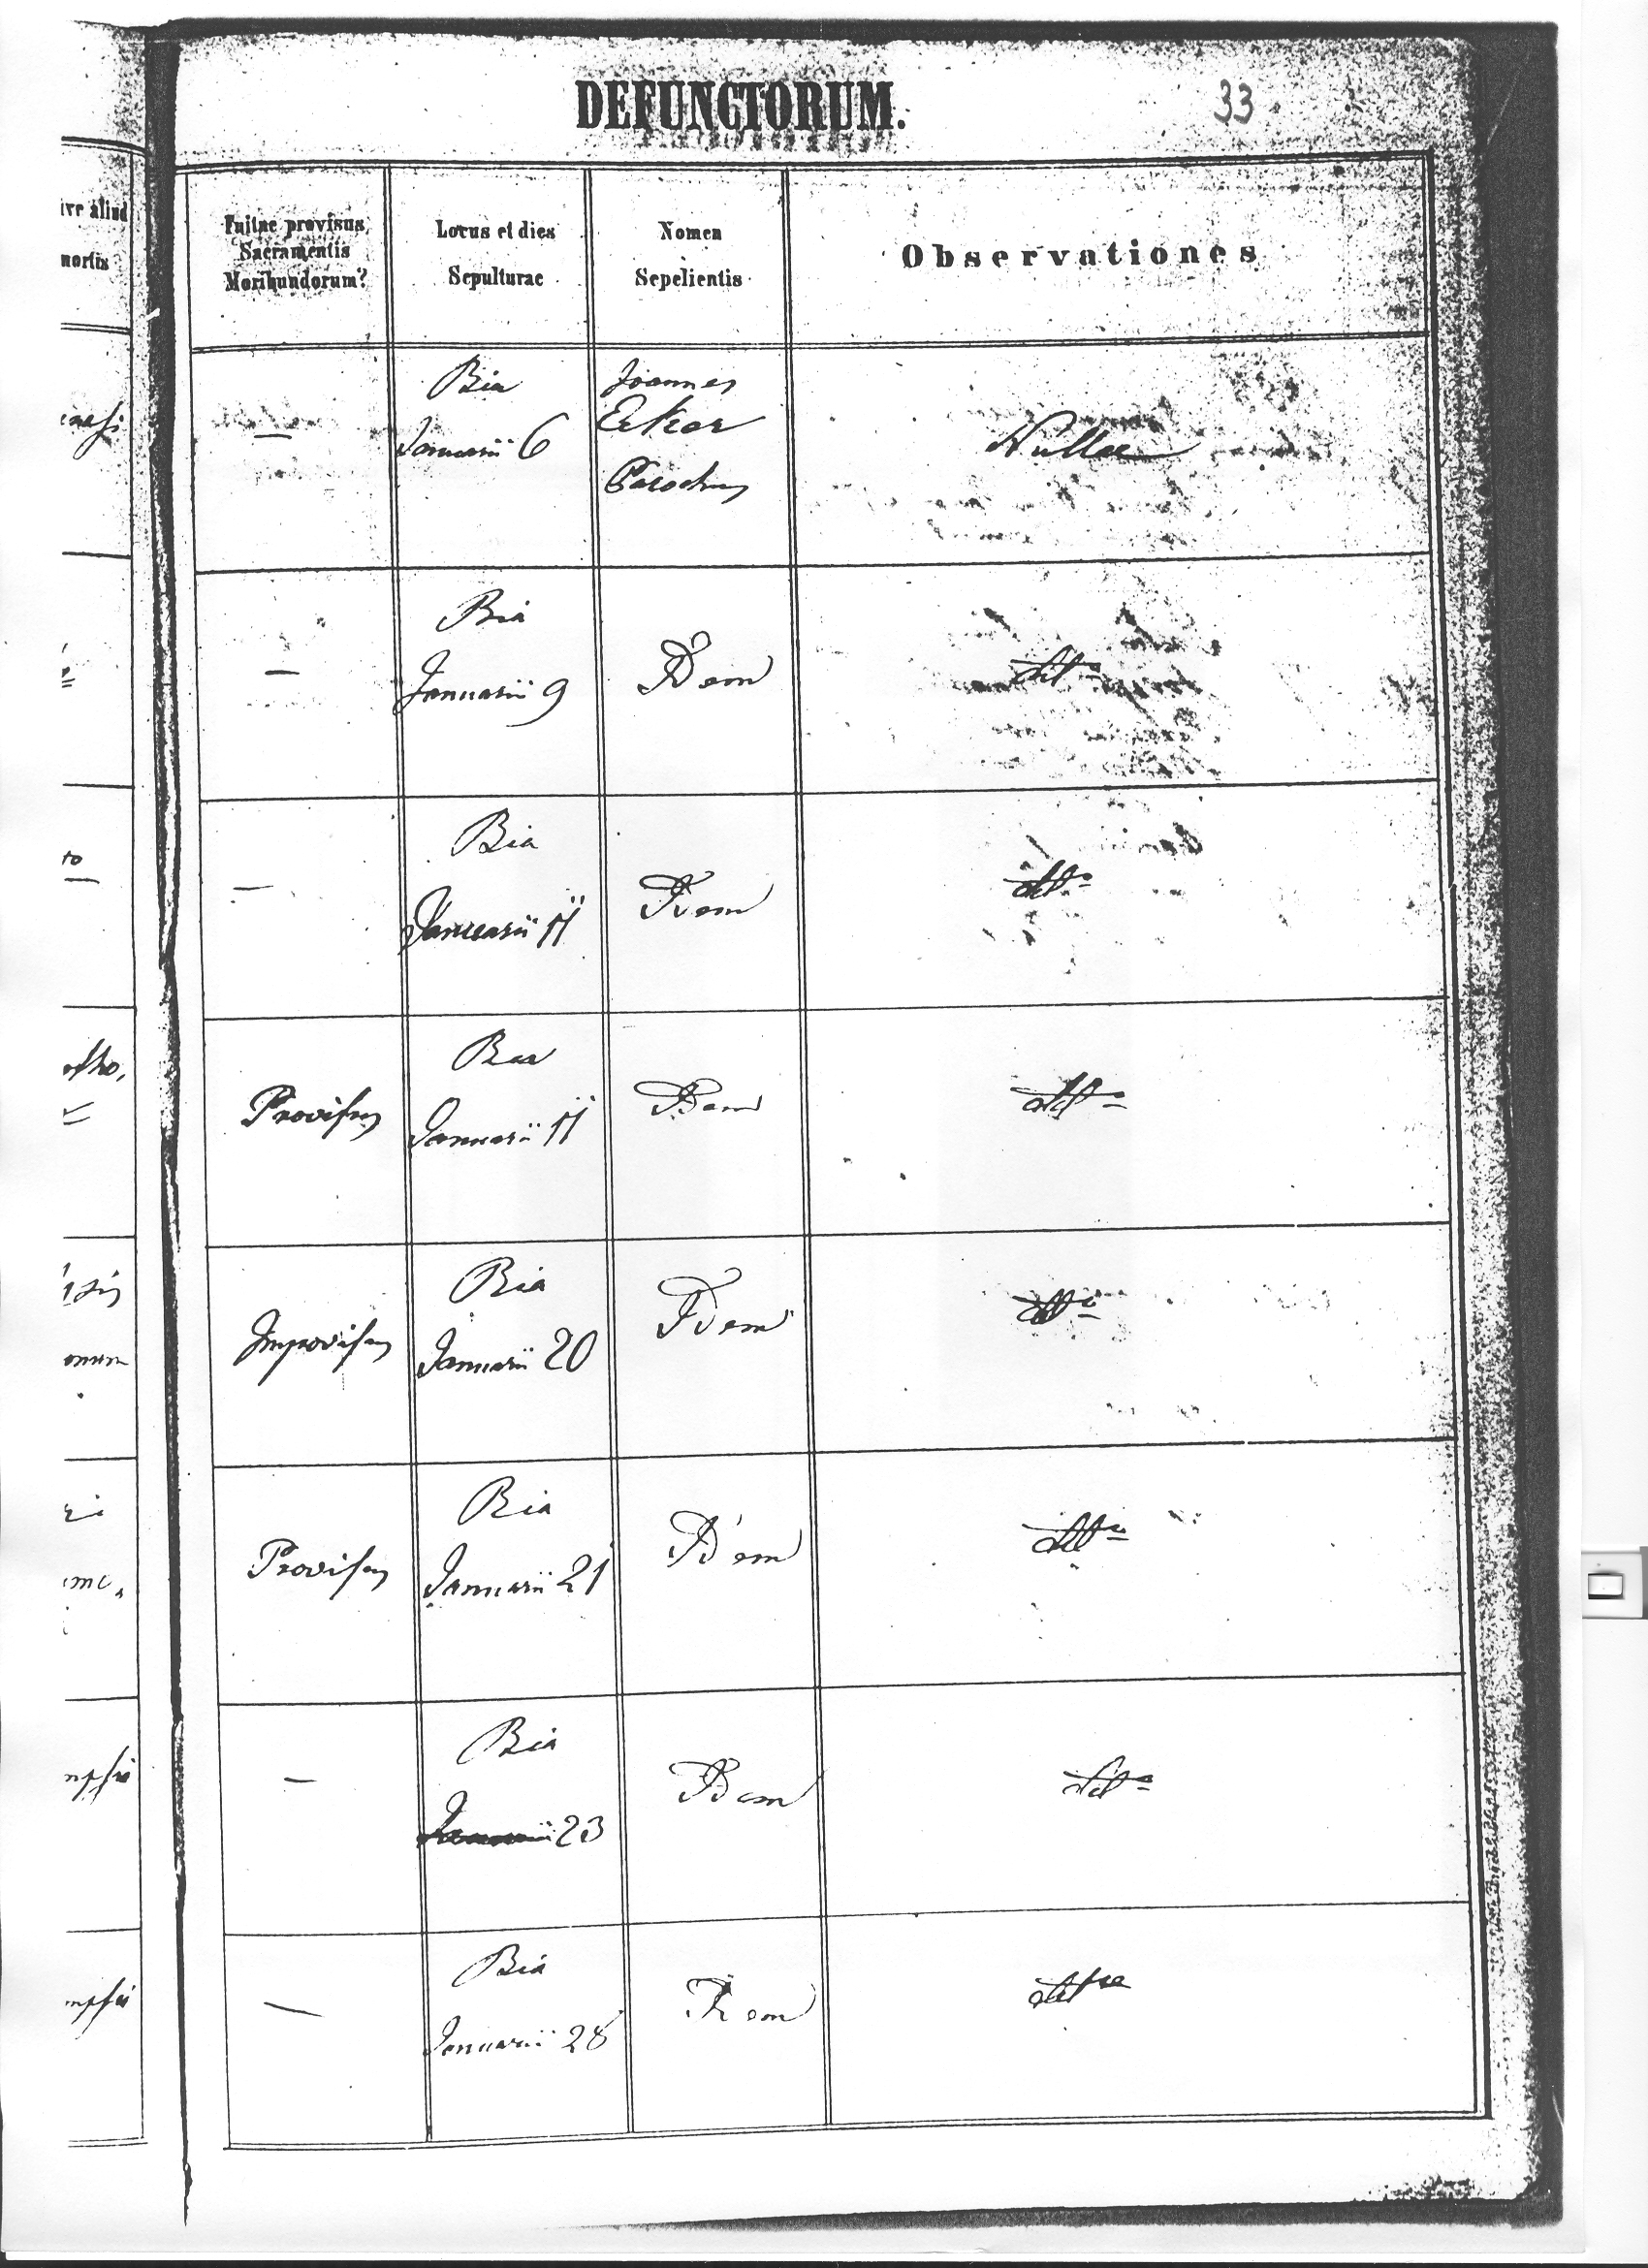 DEFUNCTORUM.
33
ive aliud
mortis
Fuitne provisus
Sacramentis
Moribundorum?
Locus et dies
Sepulturae
Nomen
Sepelientis
Observationes
—
Bia
Januarii 6
Joannes
Parochus
Nullae
—
Bia
Januarii 9
Idem
dtto
—
Bia
Januarii 11
Idem
dtto
Provisus
Bia
Januarii 11
Idem
dtto
Improvisus
Bia
Januarii 20
Idem
dtto
Provisus
Bia
Januarii 21
Idem
dtto
—
Bia
Januarii 23
Idem
dtto
—
Bia
Januarii 28
Idem